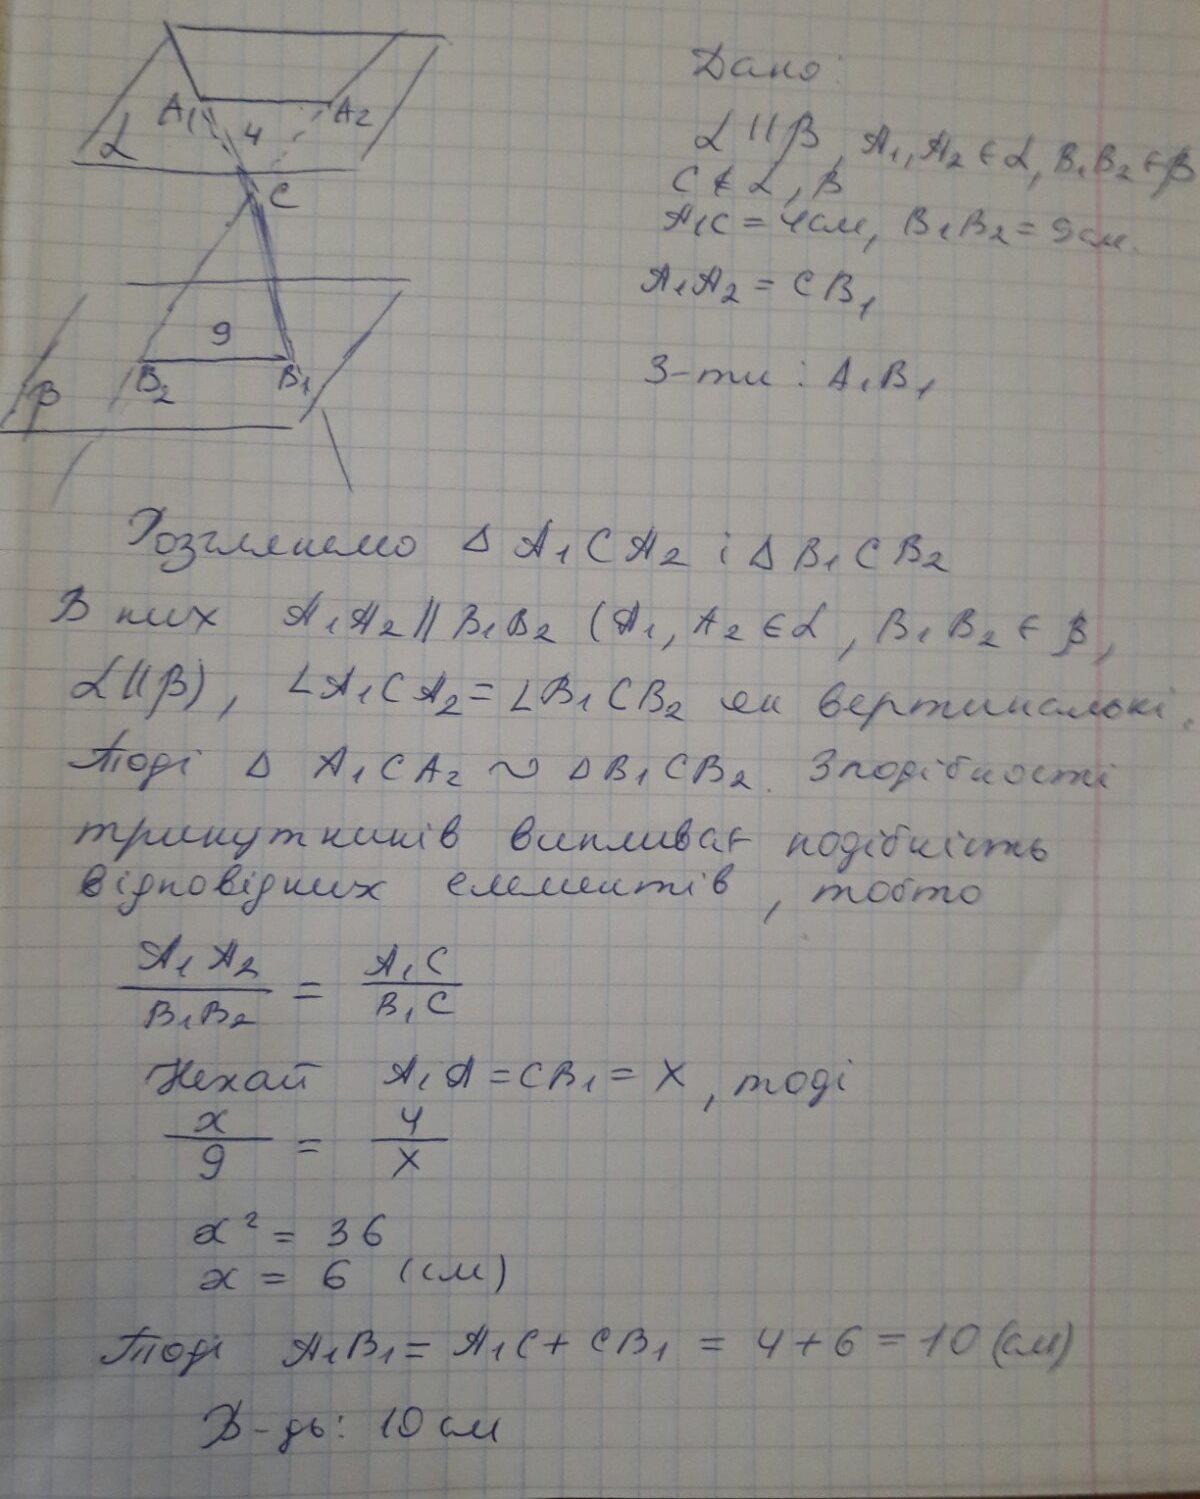 A₁ A₂
4
α
C
9
B₂ B₁
β
Дано:
α || β, A₁, A₂ ∈ α, B₁ B₂ ∈ β
C ∉ α, β
A₁C = 4см, B₁B₂ = 9см.
A₁A₂ = CB₁
З-ти: A₁B₁
Розглянемо Δ A₁CA₂ і Δ B₁CB₂
В них A₁A₂ || B₁B₂ (A₁, A₂ ∈ α, B₁ B₂ ∈ β,
α || β), ∠A₁CA₂ = ∠B₁CB₂ як вертикальні.
Тоді Δ A₁CA₂ ~ ΔB₁CB₂. З подібності
трикутників випливає подібність
відповідних елементів, тобто
A₁A₂/B₁B₂ = A₁C/B₁C
Нехай A₁A = CB₁ = x, тоді
x/9 = 4/x
x² = 36
x = 6 (см)
Тоді A₁B₁ = A₁C + CB₁ = 4 + 6 = 10 (см)
В-дь: 10 см